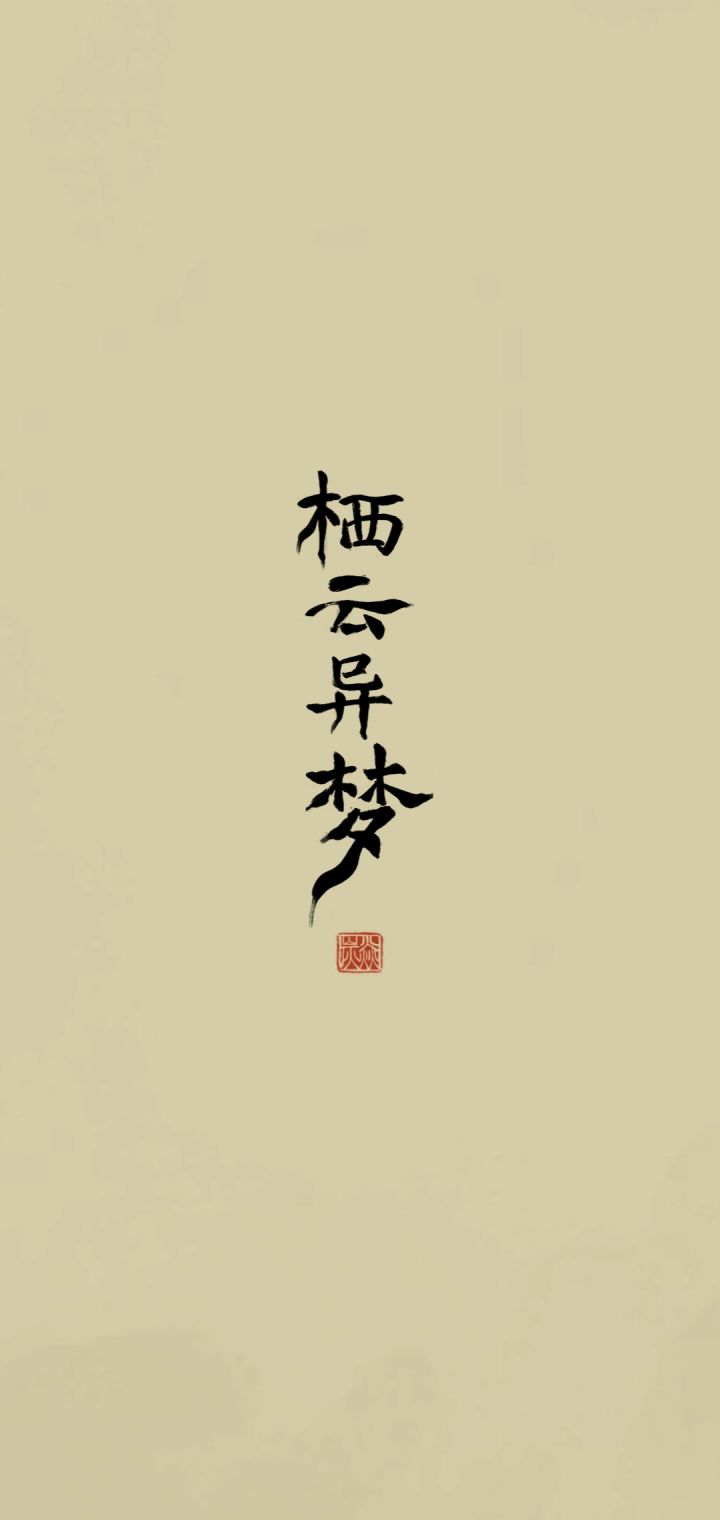 栖云异梦